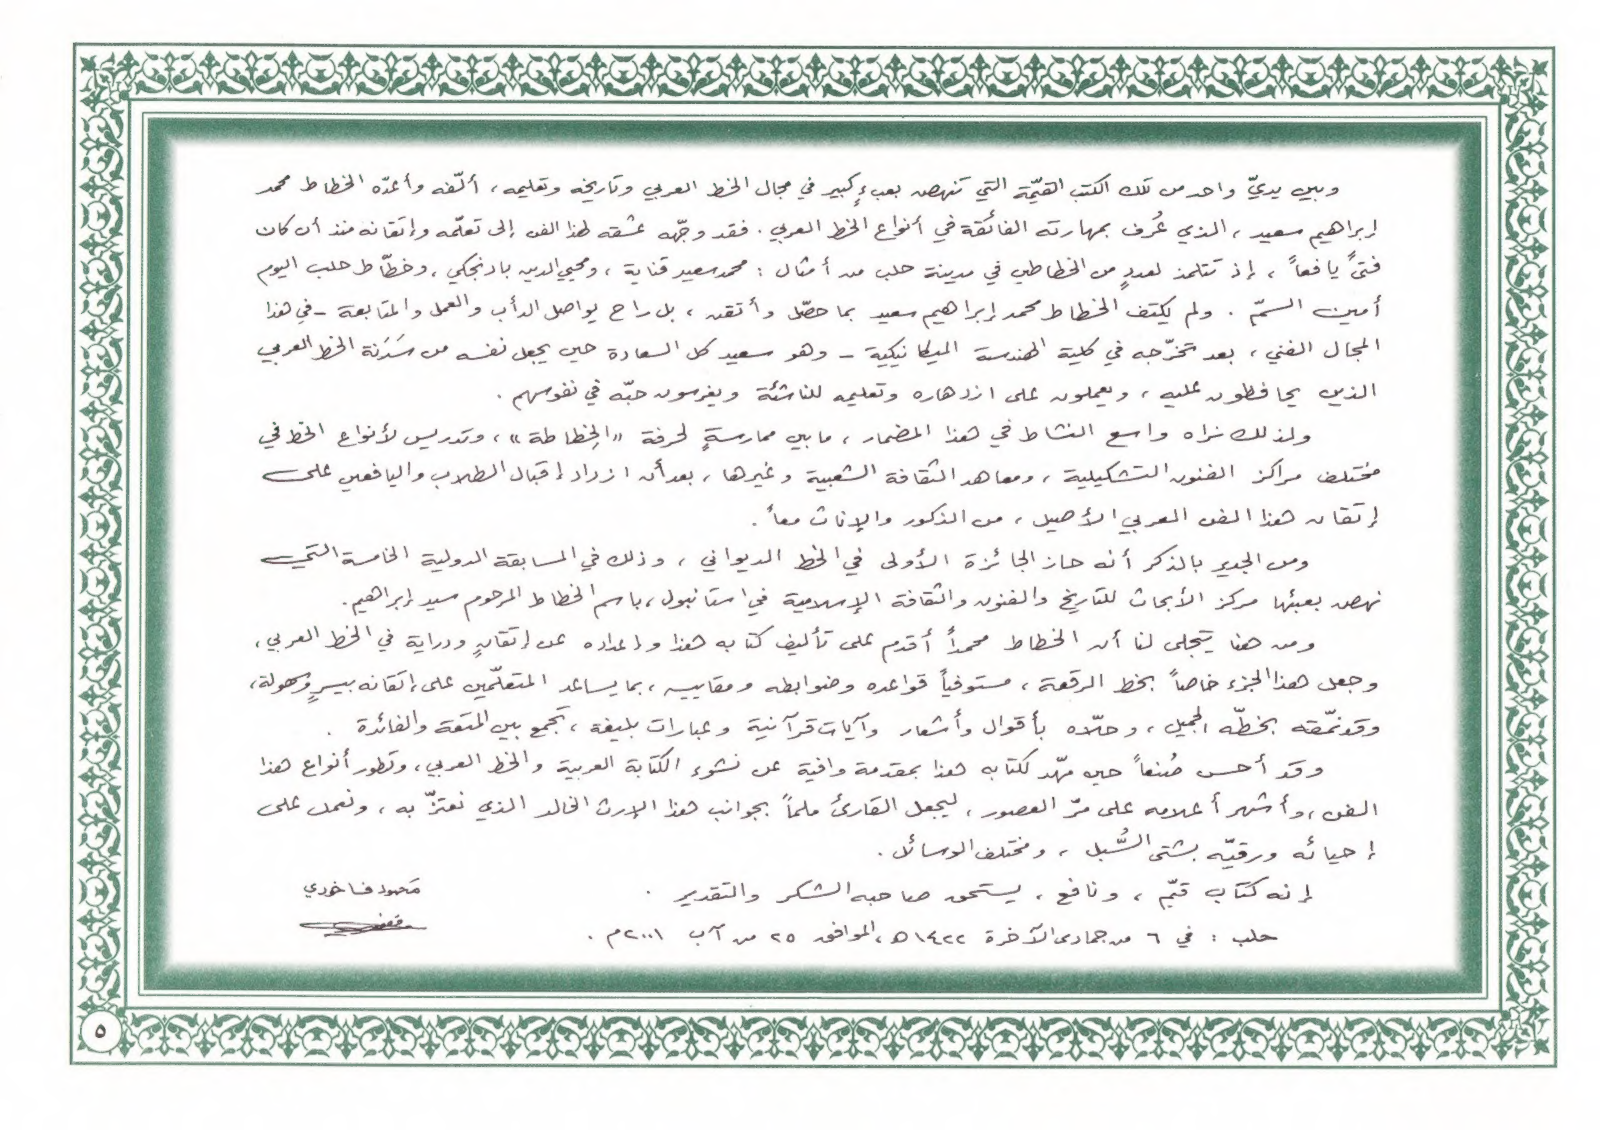 وبين يديّ واحد من تلك الكتب القيّمة التي تنهض بعبءٍ كبير في مجال الخط العربي وتاريخه وتعليمه ، ألّفه وأعدّه الخطاط محمد
إبراهيم سعيد ، الذي عُرف بمهارته الفائقة في أنواع الخط العربي . فقد وجّهه عشقه لهذا الفن إلى تعلّمه وإتقانه منذ أن كان
فتىً يافعاً ، إذ تتلمذ لعددٍ من الخطاطين في مدينة حلب من أمثال : محمد سعيد قناية ، ومحيي الدين بادنجكي ، وخطّاط حلب اليوم
أمين السمّ . ولم يكتف الخطاط محمد إبراهيم سعيد بما حصّل وأتقن ، بل راح يواصل الدأب والعمل والمتابعة - في هذا
المجال الفني ، بعد تخرّجه في كلية الهندسة الميكانيكية - وهو سعيد كل السعادة حين يجعل نفسه من سَدَنة الخط العربي
الذين يحافظون عليه ، ويعملون على ازدهاره وتعليمه للناشئة ويغرسون حبّه في نفوسهم .
ولذلك نراه واسع النشاط في هذا المضمار ، ما بين ممارسةٍ لحرفة «الخِطاطة» ، وتدريس لأنواع الخط في
مختلف مراكز الفنون التشكيلية ، ومعاهد الثقافة الشعبية وغيرها ، بعد أن ازداد إقبال الطلاب واليافعين على
إتقان هذا الفن العربي الأصيل ، من الذكور والإناث معاً .
ومن الجدير بالذكر أنه حاز الجائزة الأولى في الخط الديواني ، وذلك في المسابقة الدولية الخامسة التي
نهض بعبئها مركز الأبحاث للتاريخ والفنون والثقافة الإسلامية في استانبول ، باسم الخطاط المرحوم سيد إبراهيم .
ومن هنا يتجلى لنا أن الخطاط محمداً أقدم على تأليف كتابه هذا وإعداده عن إتقانٍ ودراية في الخط العربي ،
وجعل هذا الجزء خاصاً بخط الرقعة ، مستوفياً قواعده وضوابطه ومقاييسه ، بما يساعد المتعلّمين على إتقانه بيسرٍ وسهولة ،
وقد نمّقه بخطّه الجميل ، وحلّاه بأقوال وأشعار وآيات قرآنية وعبارات بليغة ، تجمع بين المتعة والفائدة .
وقد أحسن صُنعاً حين مهّد لكتابه هذا بمقدمة وافية عن نشوء الكتابة العربية والخط العربي ، وتطور أنواع هذا
الفن ، وأشهر أعلامه على مرّ العصور ، ليجعل القارئ ملماً بجوانب هذا الإرث الخالد الذي نعتزّ به ، ونعمل على
إحيائه ورقيّه بشتى السُّبل ، ومختلف الوسائل .
إنه كتاب قيّم ، ونافع ، يستحق صاحبه الشكر والتقدير .
محمود فاخوري
حلب : في ٦ من جمادى الآخرة ١٤٢٢هـ ، الموافق ٢٥ من آب ٢٠٠١م .
٥